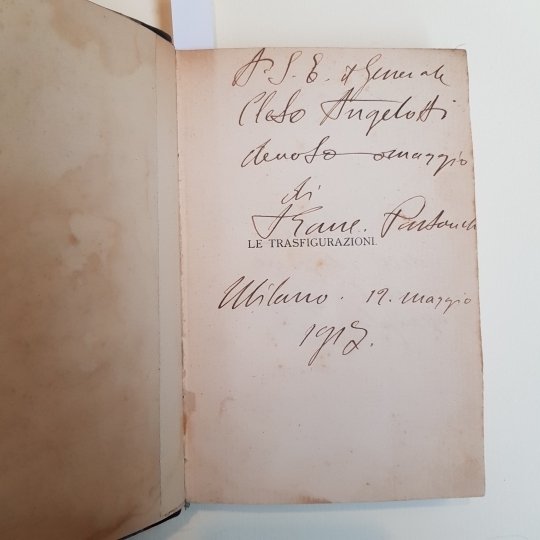 A S. E. il Generale
Celso Angelotti
devoto omaggio
di
Franc. Pastonchi
LE TRASFIGURAZIONI.
Milano. 12. maggio
1917.